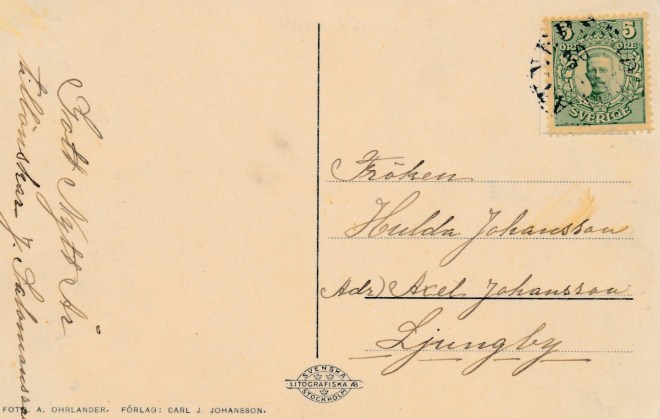 Gott Nytt År
tillönskar J. Salomonsson
5 5
ÖRE ÖRE
SVERIGE
Fröken
Hulda Johansson
Adr) Axel Johansson
Ljungby
SVENSKA
LITOGRAFISKA AB
STOCKHOLM
FOTO. A. OHRLANDER. FÖRLAG: CARL J. JOHANSSON.